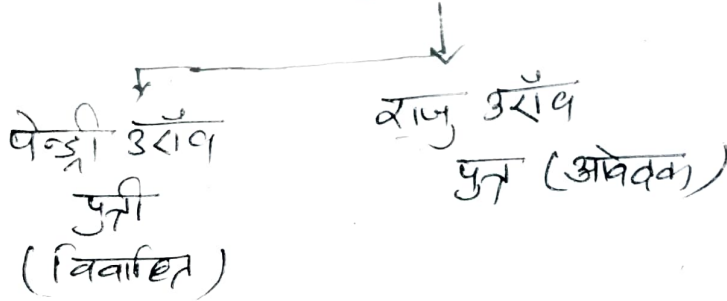 पेन्ड्री उराँव
पुत्री
(विवाहित)
राजु उराँव
पुत्र (आवेदक)